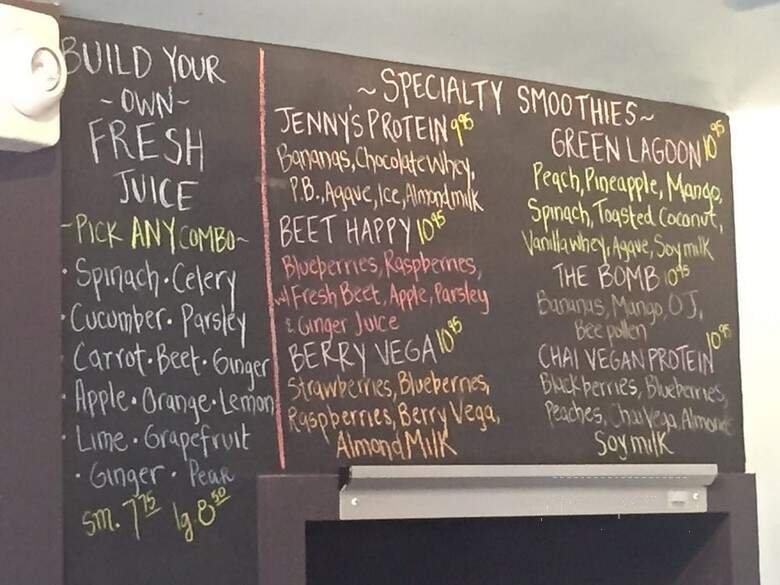 BUILD YOUR
~OWN~
FRESH
JUICE
~PICK ANY COMBO~
· Spinach · Celery
· Cucumber · Parsley
Carrot · Beet · Ginger
· Apple · Orange · Lemon
· Lime · Grapefruit
· Ginger · Pear
sm. 7.75 lg 8.50
~SPECIALTY SMOOTHIES~
JENNY'S PROTEIN 9.95
Bananas, Chocolate Whey,
P.B., Agave, Ice, Almond milk
BEET HAPPY 10.95
Blueberries, Raspberries,
w/ Fresh Beet, Apple, Parsley
& Ginger Juice
BERRY VEGA 10.95
Strawberries, Blueberries,
Raspberries, Berry Vega,
Almond Milk
GREEN LAGOON 10.95
Peach, Pineapple, Mango,
Spinach, Toasted Coconut,
Vanilla whey, Agave, Soy milk
THE BOMB 10.95
Bananas, Mango, OJ,
Bee pollen
CHAI VEGAN PROTEIN 10.95
Blackberries, Blueberries,
Peaches, Chai Vega, Almond
Soy milk